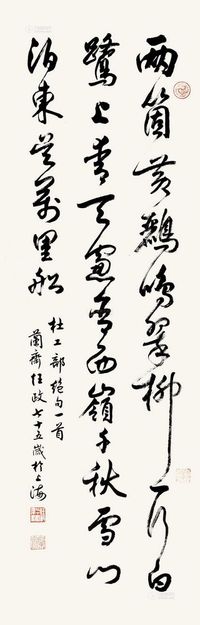 兩箇黃鸝鳴翠柳一行白
鷺上青天窗含西嶺千秋雪門
泊東吳萬里船
杜工部絕句一首
蘭齋任政七十五歲於上海